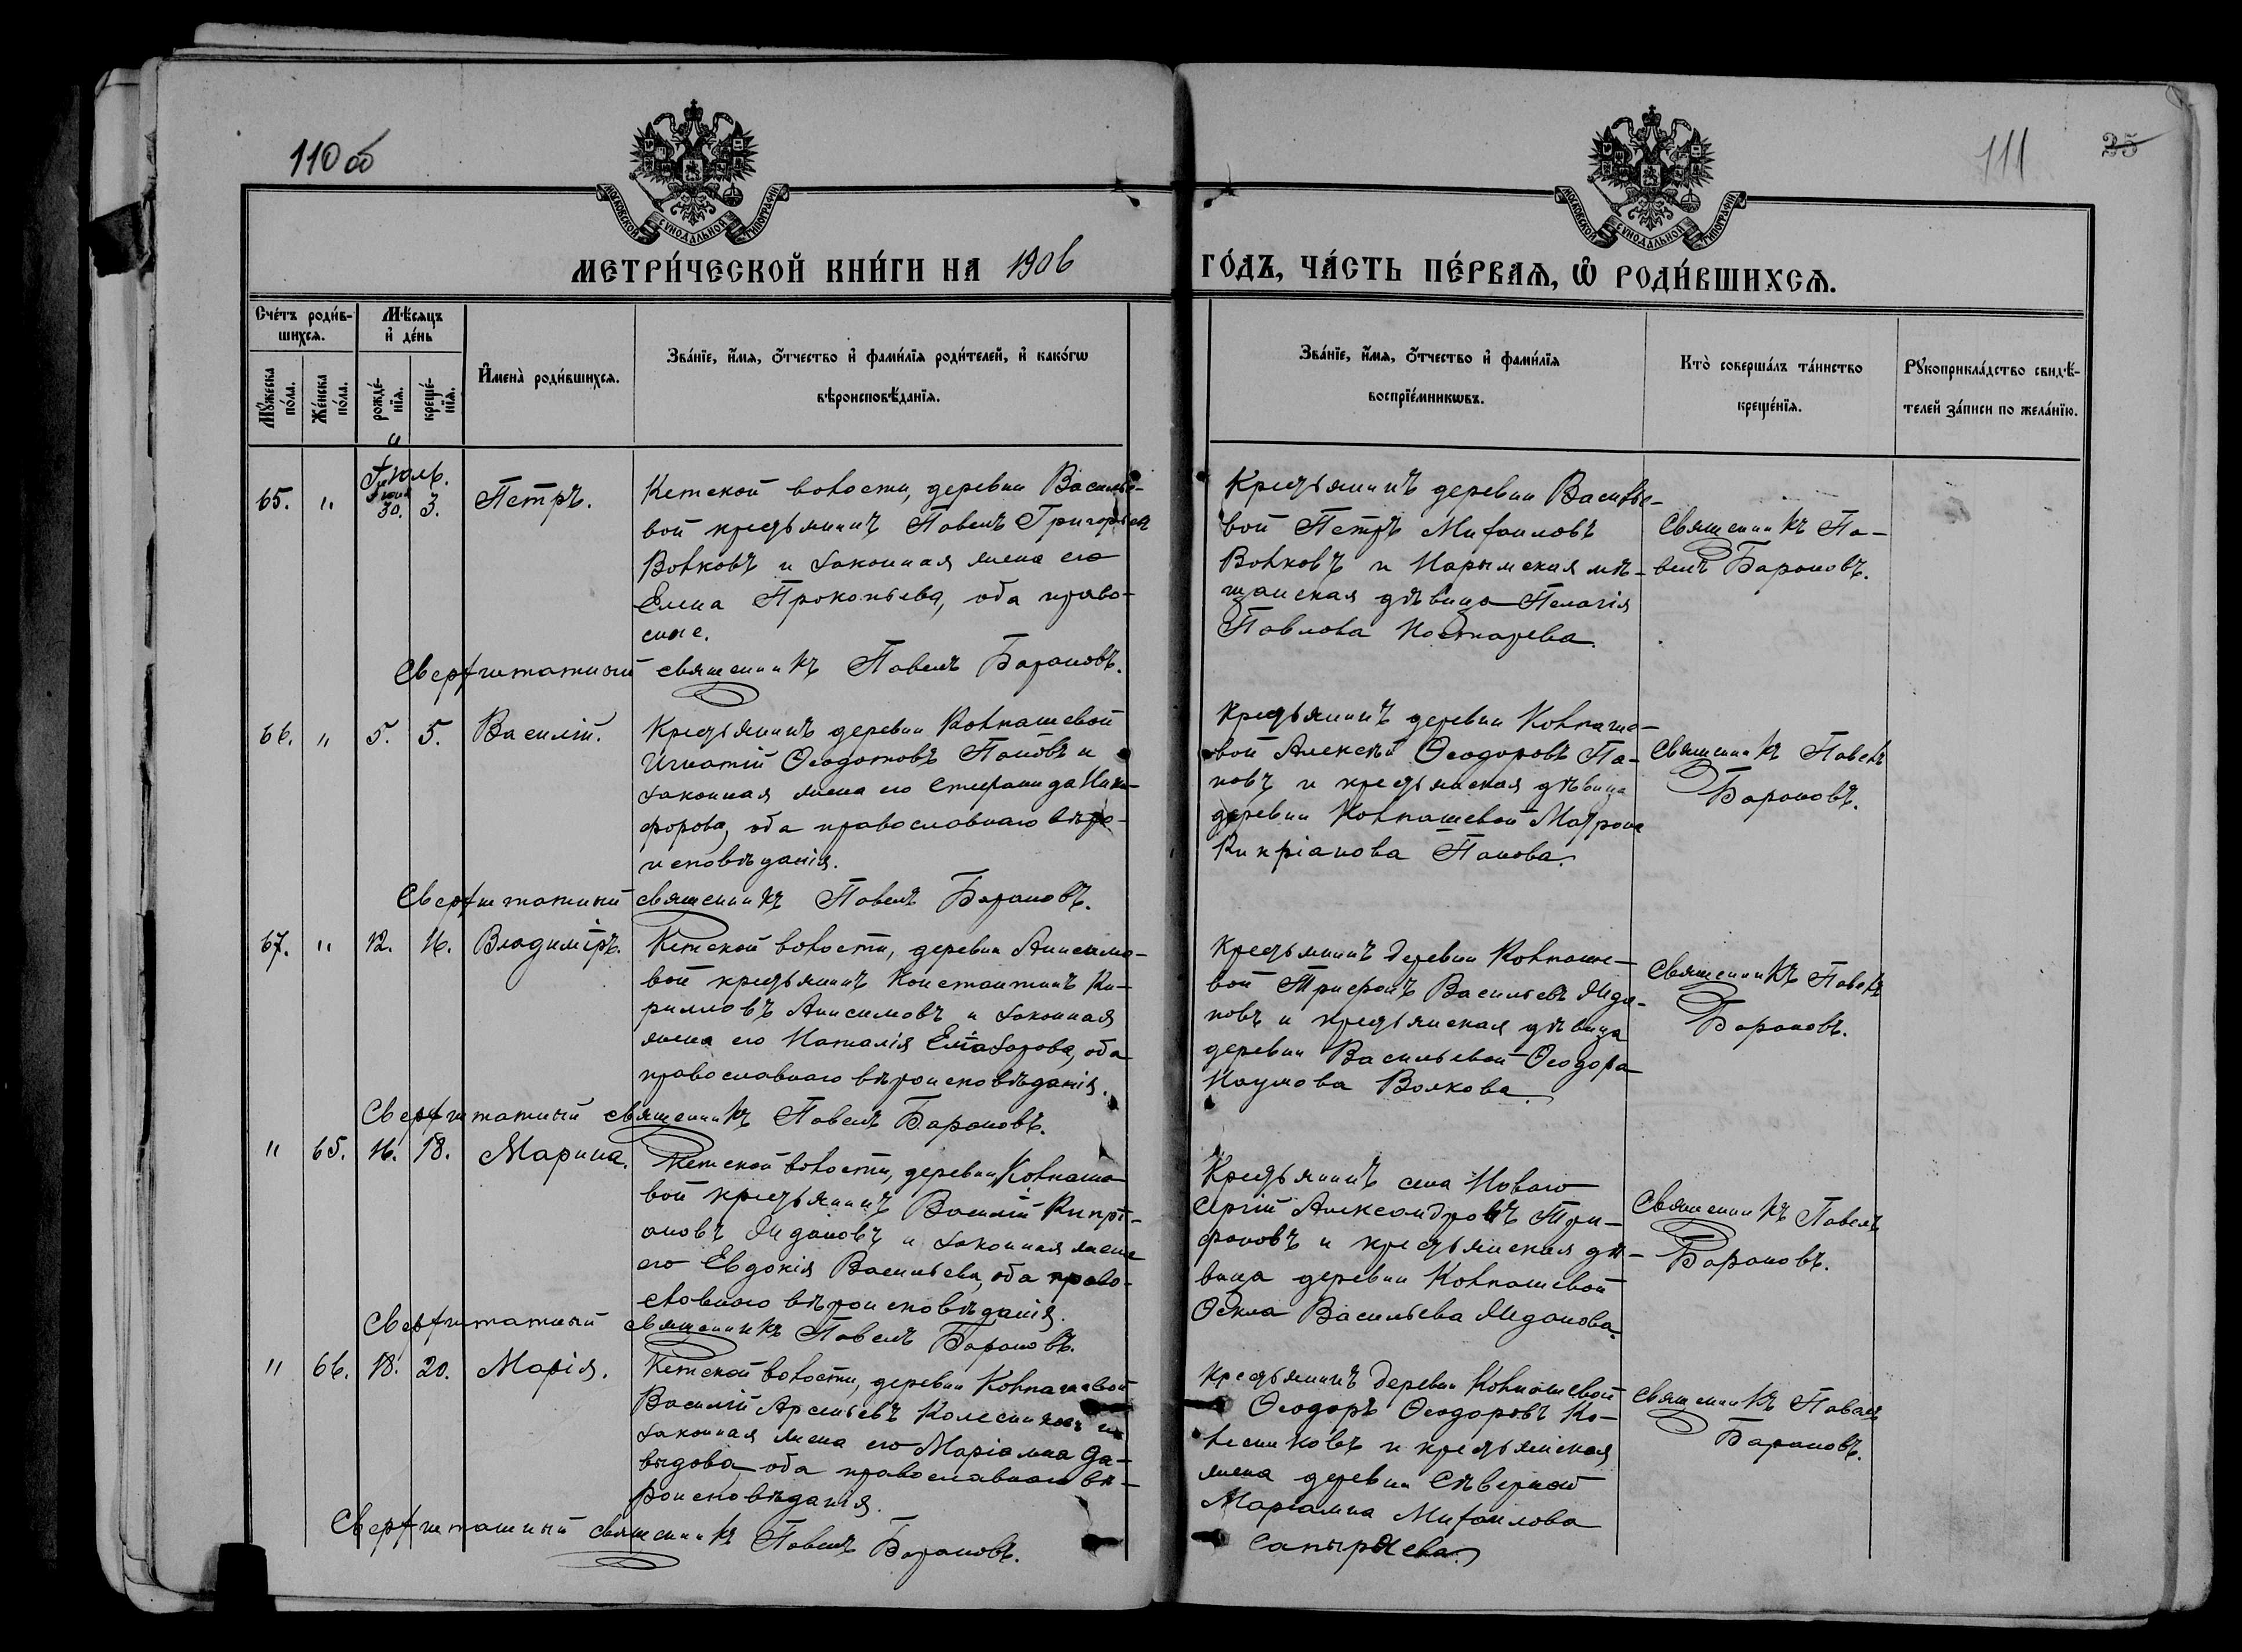 110 об
111
35
МОСКОВСКОЙ СѴНОДАЛЬНОЙ ТИПОГРАФІИ
МОСКОВСКОЙ СѴНОДАЛЬНОЙ ТИПОГРАФІИ
МЕТРИ́ЧЕСКОЙ КНИ́ГИ НА 1906
ГО́ДЪ, ЧА́СТЬ ПЕ́РВАѦ, Ѡ҆ РОДИ́ВШИХСѦ.
Сче́тъ роди́в-
шихсѧ.
Мѣ́сяцъ
и҆ де́нь
Мꙋ́жеска
по́ла.
Же́нска
по́ла.
рожде́-
нїѧ.
креще́-
нїѧ.
И҆мена̀ роди́вшихсѧ.
Зва́нїе, и҆́мѧ, ѻ҆́тчество и҆ фами́лїѧ роди́телей, и҆ како́гѡ
вѣроисповѣ́данїѧ.
Зва́нїе, и҆́мѧ, ѻ҆́тчество и҆ фами́лїѧ
воспрїе́мникѡвъ.
Кто̀ соверша́лъ та́инство
креще́нїѧ.
Рꙋкоприкла́дство свидѣ́-
телей за́писи по жела́нїю.
Іюль.
65. " Іюня 30. 3. Петръ.
Кетской волости, деревни Василье-
вой крестьянинъ Павелъ Григорьев
Волковъ и законная жена его
Елена Прокопьева, оба право-
слов.
Сверхштатный священникъ Павелъ Барановъ.
Крестьянинъ деревни Василье-
вой Петръ Михаиловъ
Волковъ и Нарымская мѣ-
щанская дѣвица Пелагія
Павлова Костарева.
Священникъ Па-
велъ Барановъ.
66. " 5. 5. Василій.
Крестьянинъ деревни Колпашевой
Игнатій Ѳеодотовъ Пановъ и
законная жена его Стефанида Ники-
форова, оба православнаго вѣро-
исповѣданія.
Сверхштатный священникъ Павелъ Барановъ.
Крестьянинъ деревни Колпаше-
вой Алексѣй Ѳеодоровъ Па-
новъ и крестьянская дѣвица
деревни Колпашевой Матрона
Кипріанова Панова.
Священникъ Павелъ
Барановъ.
67. " 12. 16. Владиміръ.
Кетской волости, деревни Анисимо-
вой крестьянинъ Константинъ Ки-
рилловъ Анисимовъ и законная
жена его Наталія Елеазарова, оба
православнаго вѣроисповѣданія.
Сверхштатный священникъ Павелъ Барановъ.
Крестьянинъ деревни Колпаше-
вой Трифонъ Васильевъ Ида-
новъ и крестьянская дѣвица
деревни Васильевой Ѳеодора
Наумова Волкова.
Священникъ Павелъ
Барановъ.
" 65. 16. 18. Марина.
Кетской волости, деревни Колпаше-
вой крестьянинъ Василій Кипрі-
ановъ Идановъ и законная жена
его Евдокія Васильева, оба право-
славнаго вѣроисповѣданія.
Сверхштатный священникъ Павелъ Барановъ.
Крестьянинъ села Новаго
Сергій Александровъ Три-
фоновъ и крестьянская дѣ-
вица деревни Колпашевой
Ѳекла Васильева Иданова.
Священникъ Павелъ
Барановъ.
" 66. 18. 20. Марія.
Кетской волости, деревни Колпашевой
Василій Арсеньевъ Колесниковъ и
законная жена его Маріамна Да-
выдова, оба православнаго вѣ-
роисповѣданія.
Сверхштатный священникъ Павелъ Барановъ.
Крестьянинъ деревни Колпашевой
Ѳеодоръ Ѳеодоровъ Ко-
лесниковъ и крестьянская
жена деревни Сѣверной
Маріамна Михаилова
Священникъ Павелъ
Барановъ.